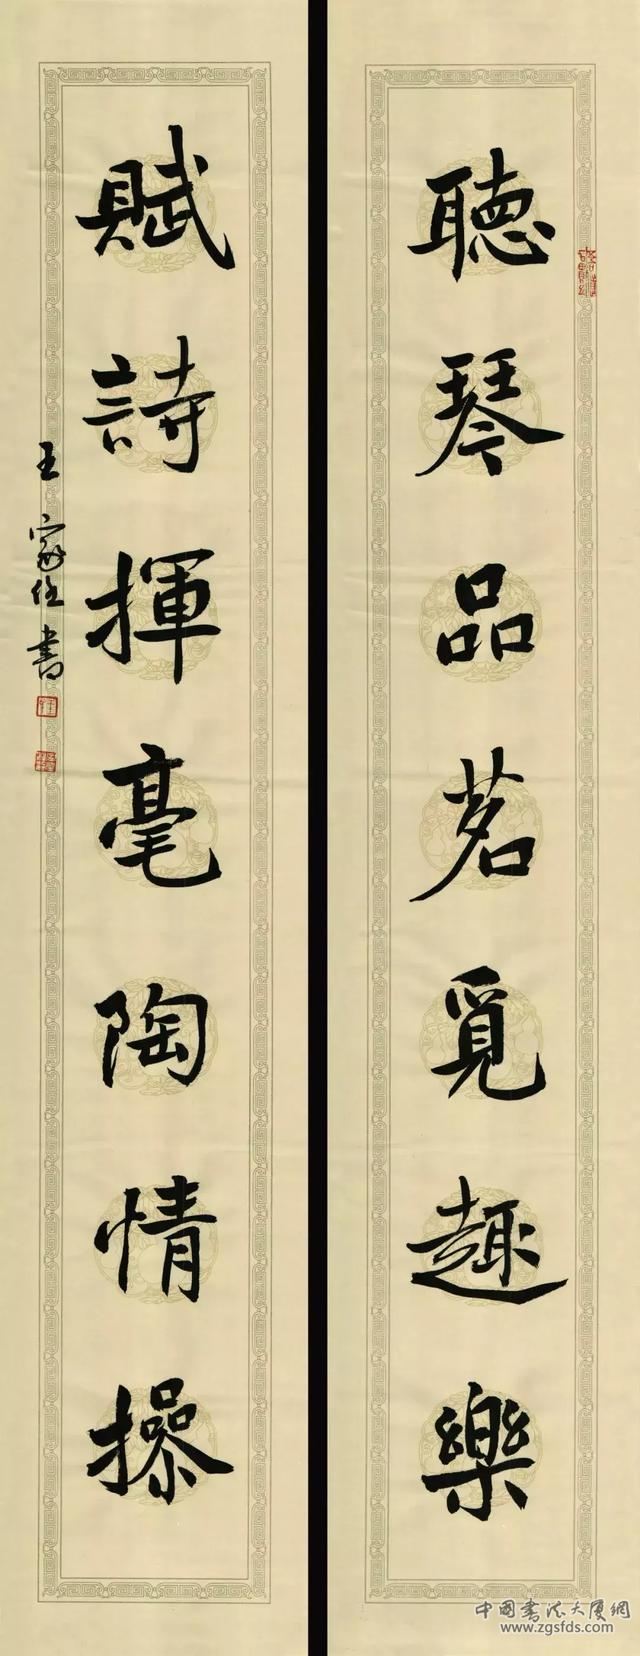 聽琴品茗覓趣樂
賦詩揮毫陶情操
王家任書
中國書法大廈網
www.zgsfds.com